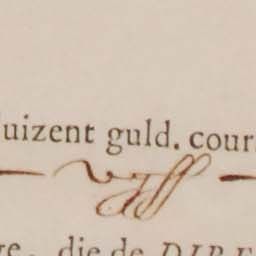 uizent guld. cour
— vyff —
die de DIRE